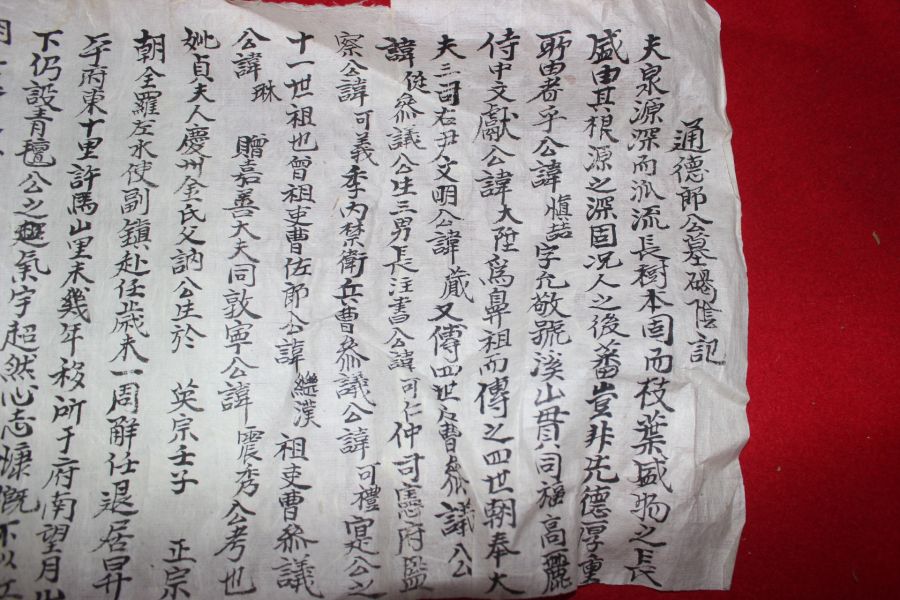 通德郎公墓碣陰記
夫泉源深而派流長樹本固而枝葉盛物之長
盛由其根源之深固况人之後蕃豈非先德厚重
所由者乎公諱慎喆字允敬號溪山貫同福高麗
侍中文獻公諱大陞爲鼻祖而傳之四世朝奉大
夫三司右尹文明公諱蕆又傳四世戶曹參議公
諱從參議公生三男長注書公諱可仁仲司憲府監
察公諱可義季內禁衛兵曹參議公諱可禮寔公之
十一世祖也曾祖吏曹佐郎公諱繼漢祖吏曹參議
公諱琳贈嘉善大夫同敦寧公諱震秀公考也
妣貞夫人慶州金氏父訥公生於英宗壬子正宗
朝全羅左水使副鎭赴任歲未一周解任退居昇
平府東十里許馬山里未幾年移所于府南望月山
下仍設青氊公之氣宇超然心志慷慨不以